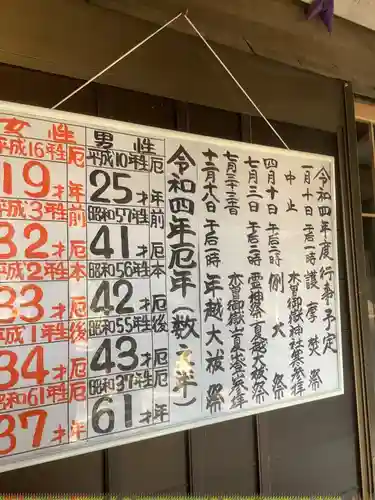 令和四年度行事予定
一月十日 午后一時 護摩焚祭
中止 木曽御嶽神社寒参拝
四月十日 午后二時 例大祭
七月三日 霊神祭 夏越大祓祭
木曽御嶽山夏季登拝
十二月十八日 午后二時 年越大祓祭
令和四年厄年（数え年）
男性
平成10年生 厄年
25才
昭和57年生 前厄
41才
昭和56年生 本厄
42才
昭和55年生 後厄
43才
昭和37年生 厄年
61才
女性
平成16年生 厄年
19才
平成3年生 前厄
32才
平成2年生 本厄
33才
平成1年生 後厄
34才
昭和61年生 厄年
37才